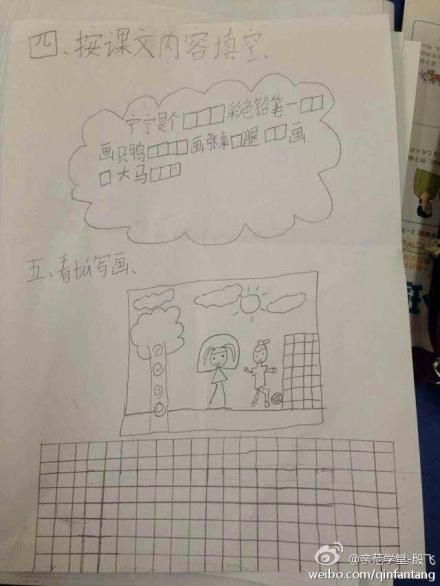 四、按课文内容填空、
宁宁是个□□□彩色铅笔一□□
画只鸭□□□画张桌□腿□□画
□大马□□□
五、看tú写画、
@亲范学堂-殷飞
weibo.com/qinfantang